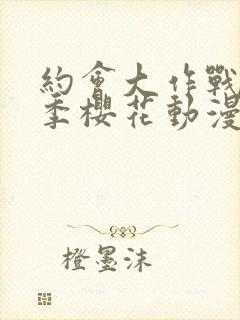 約會大作戰
季櫻花動漫
橙墨沫